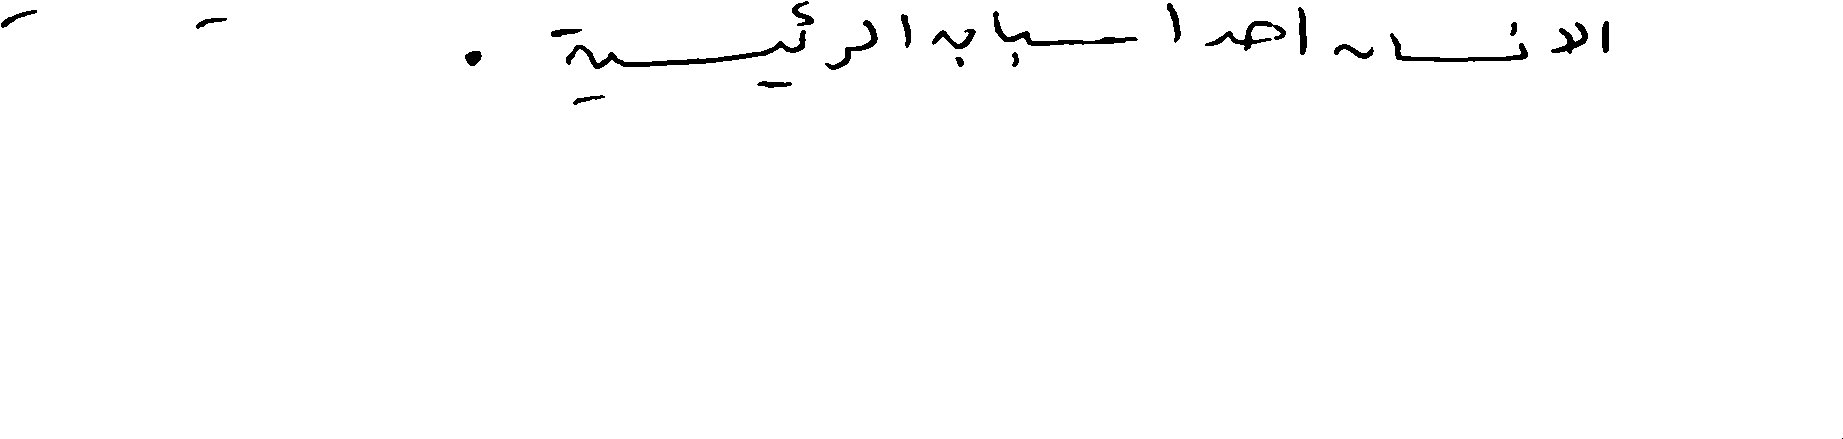 الانسان احد اسبابه الرئيسية .